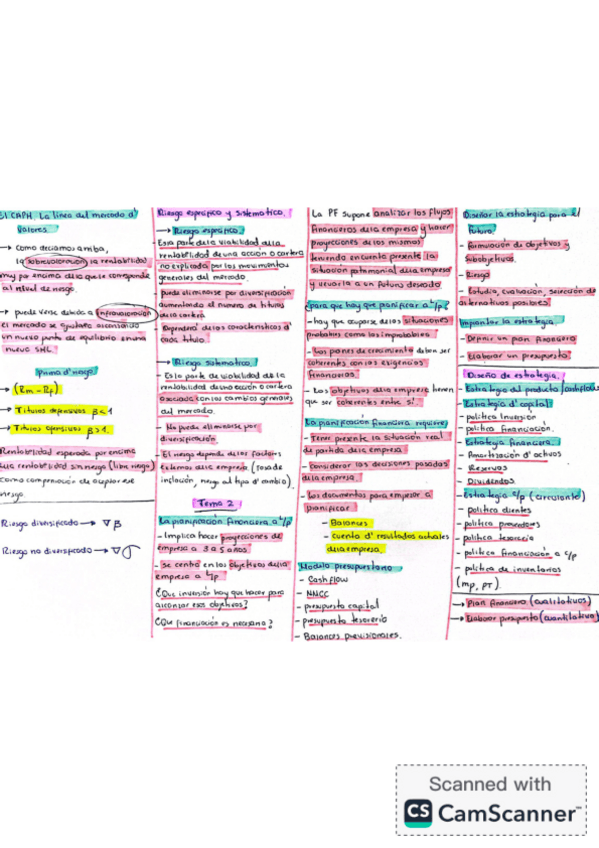 El CAPM. La línea del mercado d'
valores.
→ Como decíamos arriba,
la sobrevaloración la rentabilidad
muy por encima de la que se corresponde
al nivel de riesgo.
→ puede verse debido a infravaloración
el mercado se ajustará alcanzando
un nuevo punto de equilibrio en una
nueva SML.
prima d'riesgo
→ (Rm - Rf)
→ Títulos defensivos β < 1
→ Títulos ofensivos β > 1.
Rentabilidad esperada por encima
de rentabilidad sin riesgo (libre riesgo)
como compensación de aceptar ese
riesgo.
Riesgo diversificado → ∇ β
Riesgo no diversificado → ∇ σ
Riesgo específico y sistemático.
→ Riesgo específico.
- Es la parte de la viabilidad de la
rentabilidad de una acción o cartera
no explicada por los movimientos
generales del mercado.
- puede eliminarse por diversificación
aumentando el número de títulos
de la cartera
- Dependerá de las características d'
cada título.
→ Riesgo sistemático.
- Es la parte de viabilidad de la
rentabilidad de una acción o cartera
asociada con los cambios generales
del mercado.
- No puede eliminarse por
diversificación.
- El riesgo depende de los factores
externos de la empresa. (tasa de
inflación, riesgo al tipo d'cambio).
Tema 2
La planificación financiera a l/p
- Implica hacer proyecciones de
empresa a 3 a 5 años.
- se centra en los objetivos de la
empresa a l/p.
¿Que inversión hay que hacer para
alcanzar esos objetivos?
¿Que financiación es necesaria?
La PF supone analizar los flujos
financieros de la empresa y hacer
proyecciones de los mismos
teniendo encuenta presente la
situación patrimonial de la empresa
y llevarla a un futuro deseado
¿para que hay que planificar a l/p?
- hay que ocuparse de las situaciones
probables como las improbables
- Los planes de crecimiento deben ser
coherentes con las exigencias
financieras.
- Los objetivos de la empresa tienen
que ser coherentes entre sí.
La planificación financiera requiere:
- Tener presente la situación real
de partida de la empresa
- Considerar las decisiones pasadas
de la empresa.
- Los documentos para empezar a
planificar
- Balances
- cuenta d' resultados actuales
de la empresa.
Modulo presupuestario
- Cash flow
- NNCC
- presupuesto capital
- presupuesto tesorería
- Balances previsionales.
Diseñar la estrategia para el
futuro
- Formulación de objetivos y
subobjetivos.
- Riesgo
- Estudio, evaluación, selección de
alternativas posibles
Implantar la estrategia.
- Definir un plan financiero
- Elaborar un presupuesto.
Diseño de estrategia.
Estrategia del producto/cashflows
Estrategia d' capital:
- política Inversión
- política financiación.
Estrategia financiera.
- Amortización d' activos
- Reservas
- Dividendos
Estrategia c/p (circulante)
- política clientes
- política proveedores
- política tesorería
- política financiación a c/p
- política de inventarios
(mp, PT).
→ Plan financiero (cualitativos)
→ Elaborar presupuesto (cuantitativo)
Scanned with
CS CamScanner™